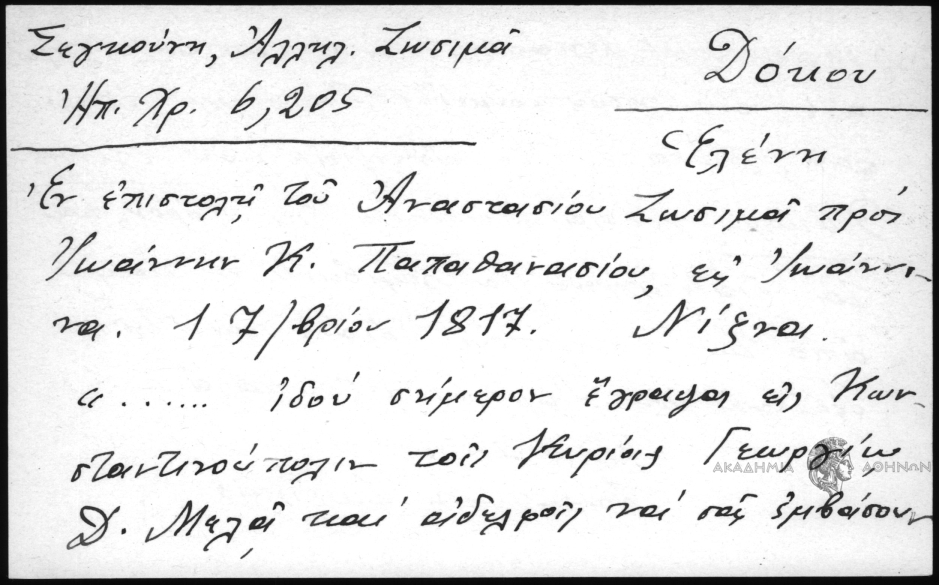 Σεγκούνη, Ἀλληλ. Ζωσιμᾶ
Ἠπ. Χρ. 6, 205
Δόκου
Ἑλένη
Ἐν ἐπιστολῇ τοῦ Ἀναστασίου Ζωσιμᾶ πρός
Ἰωάννην Κ. Παπαθανασίου, εἰς Ἰωάννι-
να. 1 7/βρίου 1817. Νίζνα.
«...... ἰδού σήμερον ἔγραψα εἰς Κων-
σταντινούπολιν τοῖς Κυρίοις Γεωργίῳ
Δ. Μελᾷ καί ἀδελφοῖς νά σᾶς ἐμβάσουν
ΑΚΑΔΗΜΙΑ ΑΘΗΝΩΝ